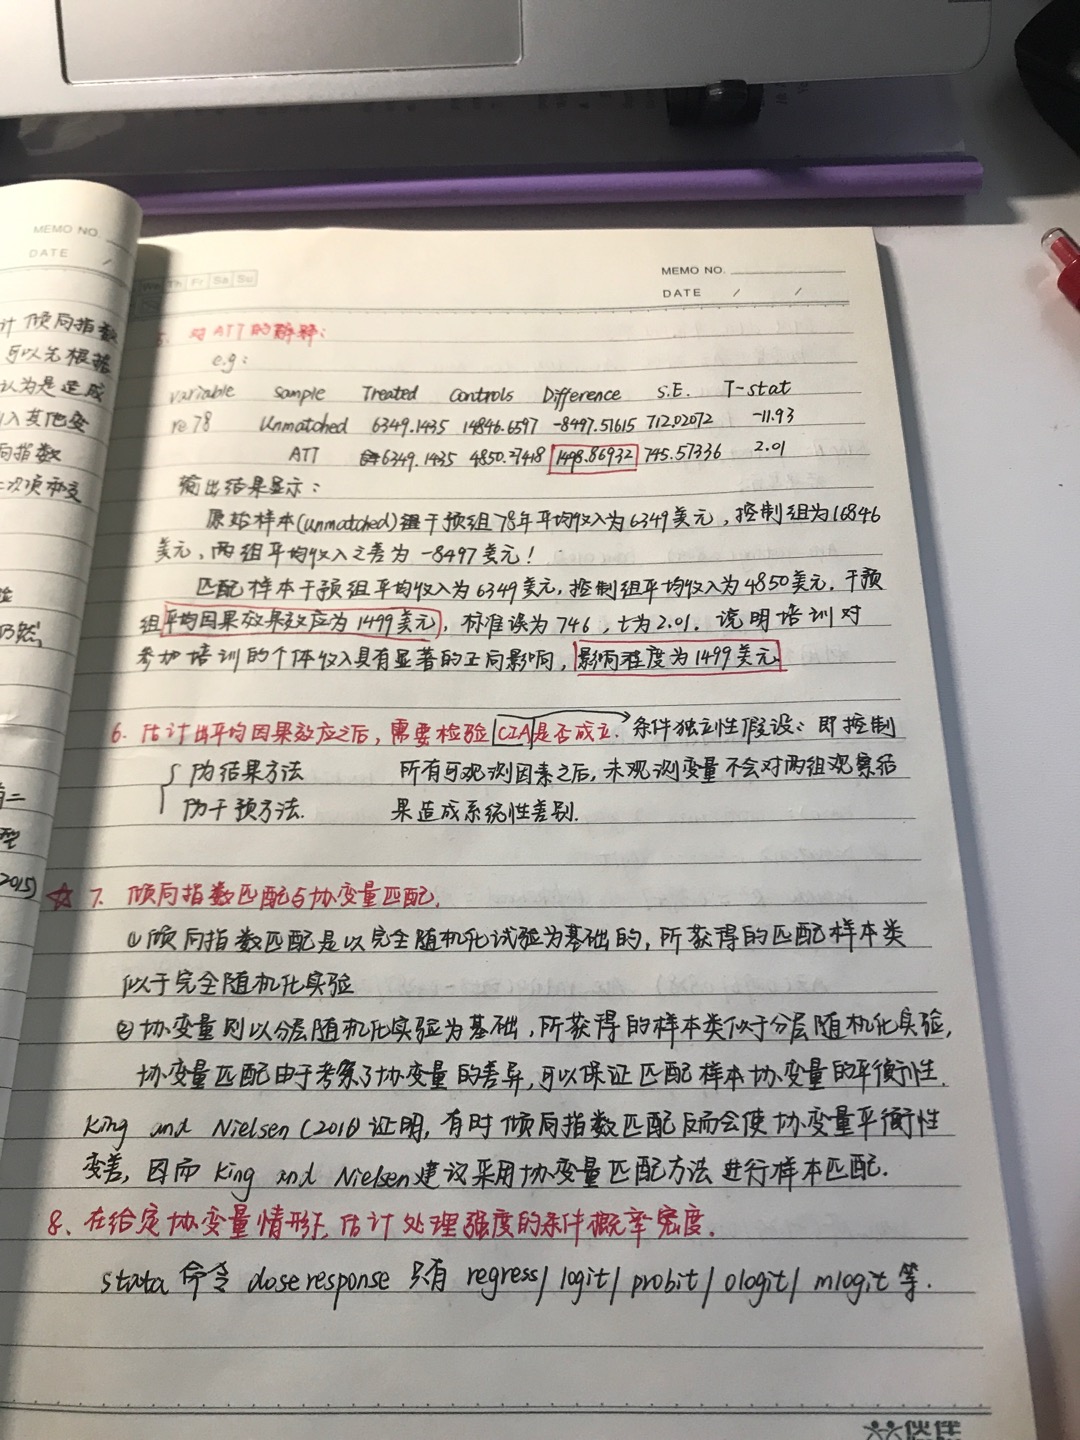 MEMO NO.
DATE /
计倾向指数
可以先根据
认为是造成
入其他变
向指数
二次项和交
验
仍然
有二
型
2015)
Th Fr Sa Su
MEMO NO.
DATE / /
5. 对ATT的解释:
e.g:
variable sample Treated Controls Difference S.E. T-stat
re78 Unmatched 6349.1435 14846.6597 -8497.51615 712.02072 -11.93
ATT 6349.1435 4850.27418 1498.86932 745.57336 2.01
输出结果显示:
原始样本(unmatched)干预组78年平均收入为6349美元,控制组为16846
美元,两组平均收入之差为-8497美元!
匹配样本干预组平均收入为6349美元,控制组平均收入为4850美元.干预
组平均因果效果效应为1499美元,标准误为746,t为2.01.说明培训对
参加培训的个体收入具有显著的正向影响,影响程度为1499美元.
6. 估计出平均因果效应之后,需要检验CIA是否成立. 条件独立性假设:即控制
伪结果方法 所有可观测因素之后,未观测变量不会对两组观察结
伪干预方法. 果造成系统性差别.
☆ 7. 倾向指数匹配与协变量匹配.
①倾向指数匹配是以完全随机化试验为基础的,所获得的匹配样本类
似于完全随机化实验
②协变量则以分层随机化实验为基础,所获得的样本类似于分层随机化实验,
协变量匹配由于考察了协变量的差异,可以保证匹配样本协变量的平衡性.
King and Nielsen(2016)证明,有时倾向指数匹配反而会使协变量平衡性
变差,因而King and Nielsen建议采用协变量匹配方法进行样本匹配.
8、在给定协变量情形下,估计处理强度的条件概率密度.
stata 命令 doseresponse 只有 regress/ logit/ probit/ ologit/ mlogit 等.
伙伴